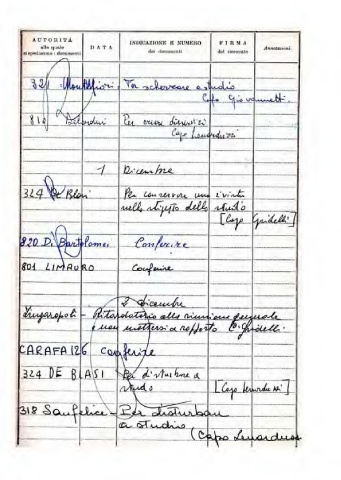 AUTORITÀ
alla quale
si spediscono i documenti
DATA
INDICAZIONE E NUMERO
dei documenti
FIRMA
del mittente
Annotazioni
321 Montefiori - Per scherzare a studio
Capo Giovannetti.
Per essere
Capo Lenarduzzi
1 Dicembre
324 De Blasi Per conservare una rivista
nello stipetto dello studio
[Capo Gridelli]
820 Di Bartolomei Conferire
801 LIMAURO Conferire
2 dicembre
Ritardatario alla riunione generale
e non mettersi a rapporto C. Gridelli
CARAFA 126 conferire
324 DE BLASI Per disturbare a
studio [Capo Lenarduzzi]
318 Sanfelice - Per disturbare
a studio
(Capo Lenarduzzi